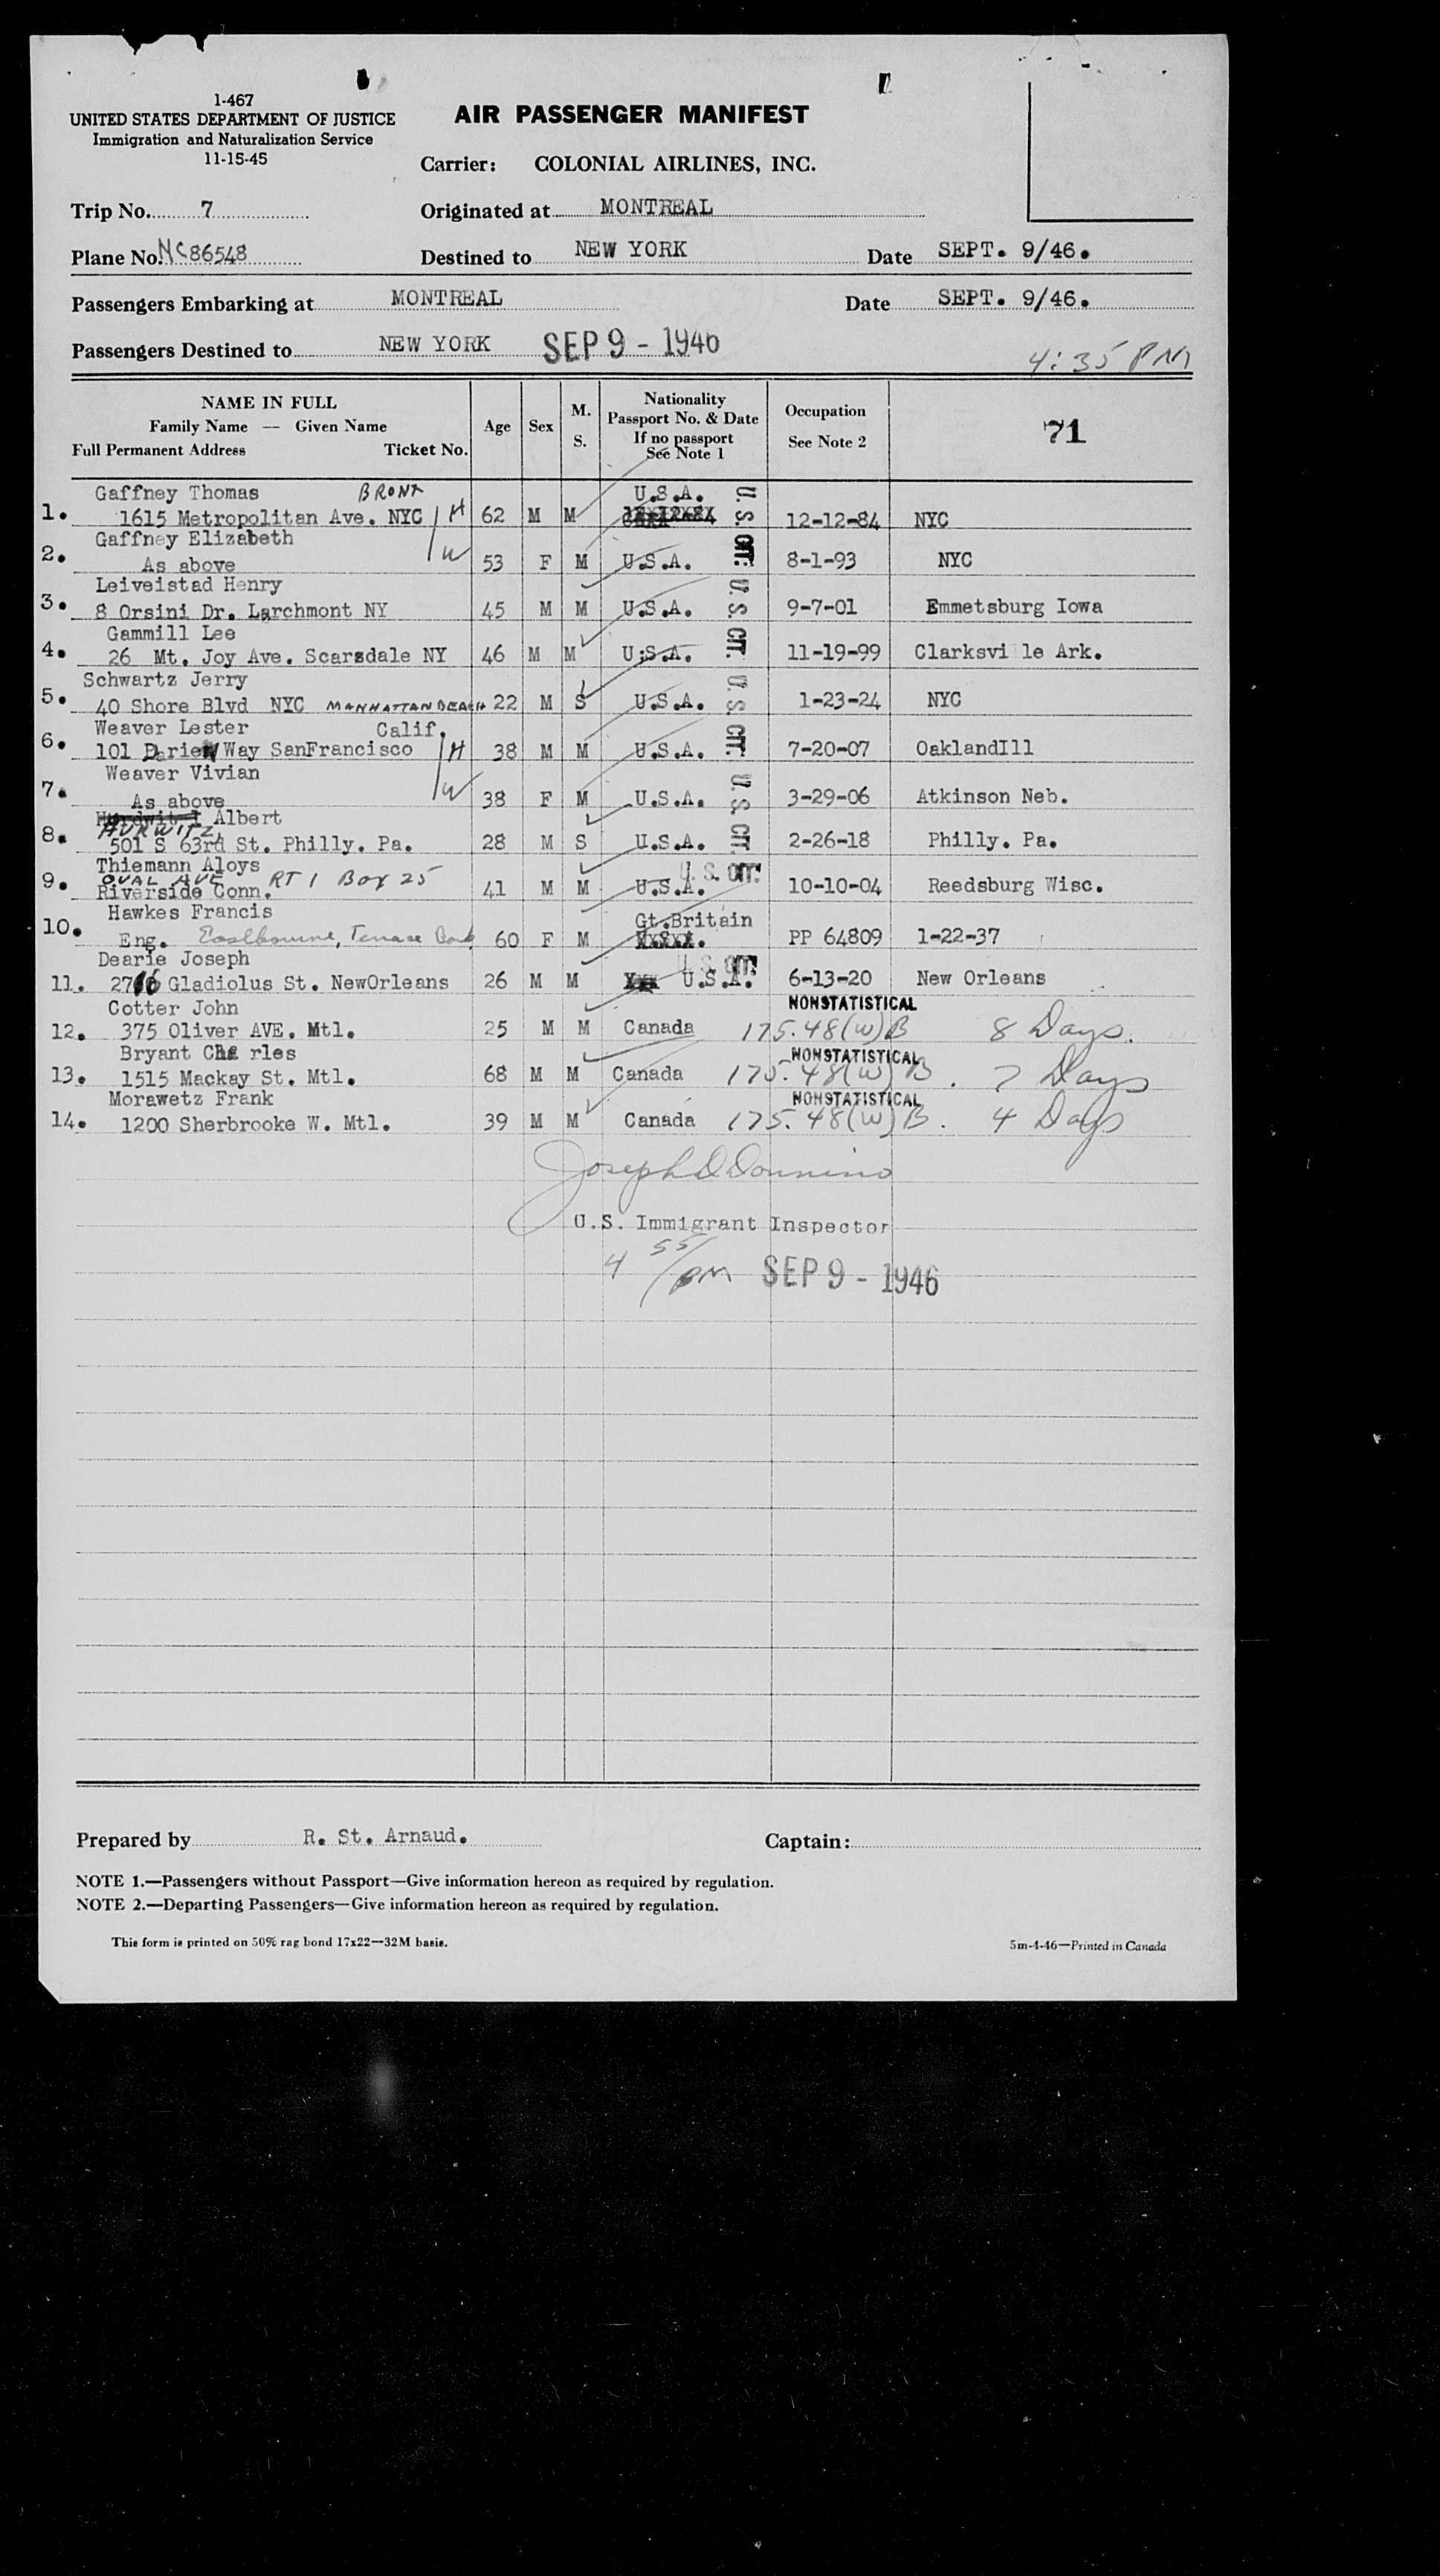 1-467
UNITED STATES DEPARTMENT OF JUSTICE
Immigration and Naturalization Service
11-15-45
AIR PASSENGER MANIFEST
Carrier: COLONIAL AIRLINES, INC.
Trip No. 7 Originated at MONTREAL
Plane No. NC86548 Destined to NEW YORK Date SEPT. 9/46.
Passengers Embarking at MONTREAL Date SEPT. 9/46.
Passengers Destined to NEW YORK SEP 9 - 1946
4:35 PM
NAME IN FULL
Family Name — Given Name
Full Permanent Address Ticket No.
Age Sex M. S.
Nationality
Passport No. & Date
If no passport
See Note 1
Occupation
See Note 2
71
Gaffney Thomas BRONX U.S.A.
1. 1615 Metropolitan Ave. NYC H 62 M M 12-12-84 NYC
Gaffney Elizabeth
2. As above W 53 F M U.S.A. U.S. CIT. 8-1-93 NYC
Leiveistad Henry
3. 8 Orsini Dr. Larchmont NY 45 M M U.S.A. 9-7-01 Emmetsburg Iowa
Gammill Lee
4. 26 Mt. Joy Ave. Scarsdale NY 46 M M U.S.A. U.S. CIT. 11-19-99 Clarksvi le Ark.
Schwartz Jerry
5. 40 Shore Blvd NYC MANHATTAN BEACH 22 M S U.S.A. 1-23-24 NYC
Weaver Lester Calif.
6. 101 Darien Way SanFrancisco H 38 M M U.S.A. U.S. CIT. 7-20-07 OaklandIll
Weaver Vivian
7. As above W 38 F M U.S.A. 3-29-06 Atkinson Neb.
Hurwitz Albert
HURWITZ
8. 501 S 63rd St. Philly. Pa. 28 M S U.S.A. U.S. CIT. 2-26-18 Philly. Pa.
Thiemann Aloys U.S. CIT.
OVAL AVE RT 1 Box 25
9. Riverside Conn. 41 M M U.S.A. 10-10-04 Reedsburg Wisc.
Hawkes Francis Gt.Britain
10. Eng. Eastbourne, 60 F M PP 64809 1-22-37
Dearie Joseph U.S. CIT.
11. 2716 Gladiolus St. NewOrleans 26 M M U.S.A. 6-13-20 New Orleans
Cotter John NONSTATISTICAL
12. 375 Oliver AVE. Mtl. 25 M M Canada 175.48(W)B 8 Days.
Bryant Cha rles NONSTATISTICAL
13. 1515 Mackay St. Mtl. 68 M M Canada 175.48(W)B. 7 Days
Morawetz Frank NONSTATISTICAL
14. 1200 Sherbrooke W. Mtl. 39 M M Canada 175.48(W)B. 4 Days
Joseph D Donnino
U.S. Immigrant Inspector
4 55/PM SEP 9 - 1946
Prepared by R. St. Arnaud. Captain:
NOTE 1.—Passengers without Passport—Give information hereon as required by regulation.
NOTE 2.—Departing Passengers—Give information hereon as required by regulation.
This form is printed on 50% rag bond 17x22—32M basis. 5m-4-46—Printed in Canada